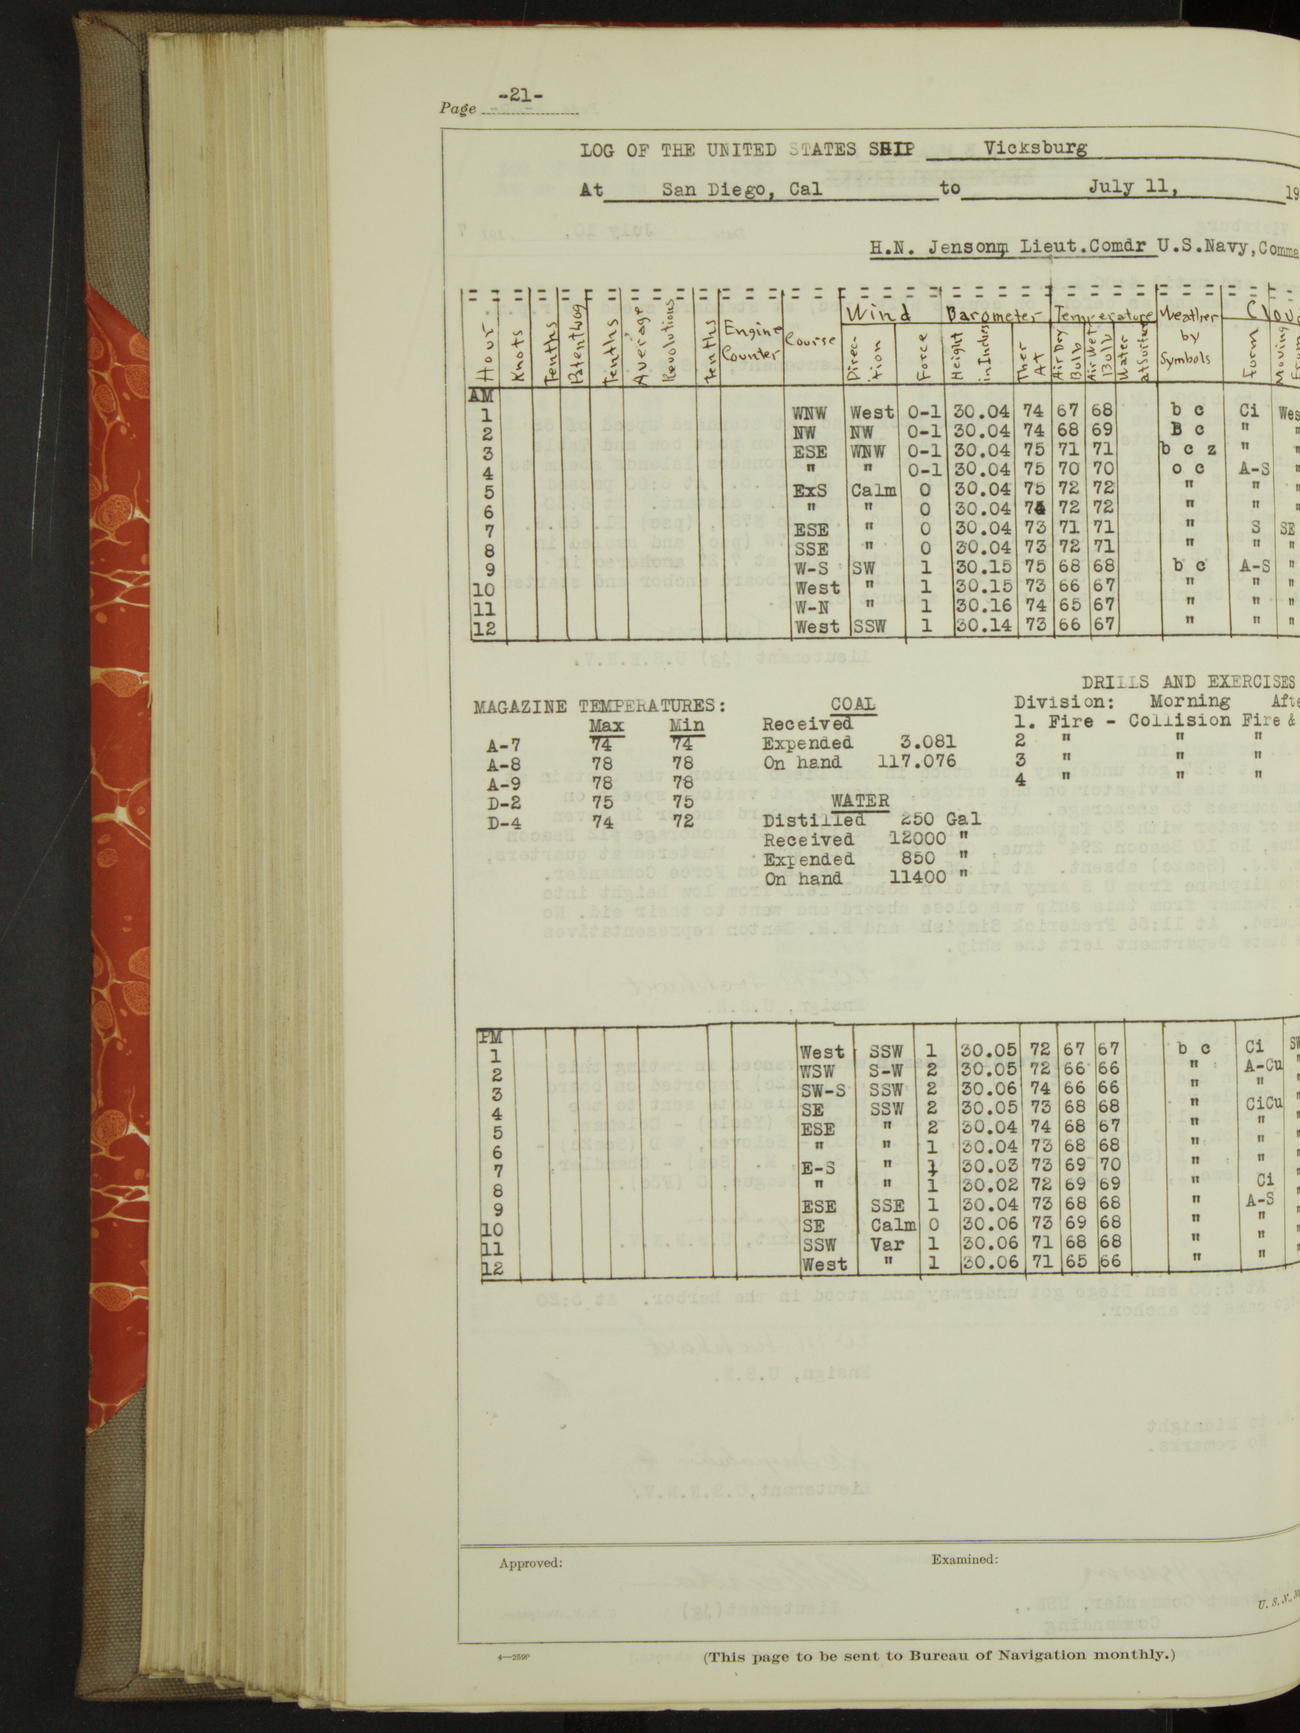 Page -21-
LOG OF THE UNITED STATES SHIP Vicksburg
At San Diego, Cal to July 11, 19
H.N. Jensonm Lieut.Comdr U.S.Navy, Comma
Hour Knots Tenths Patent Log Tenths Average Revolutions Tenths Engine Counter Course Wind Direc-tion Force Barometer Height in Inches Ther At Temperature Air Dry Bulb Air Wet Bulb Water at Surface Weather by Symbols Clou Form Moving From
AM
1 WNW West 0-1 30.04 74 67 68 b c Ci Wes
2 NW NW 0-1 30.04 74 68 69 B c " "
3 ESE WNW 0-1 30.04 75 71 71 b c z " "
4 " " 0-1 30.04 75 70 70 o c A-S "
5 ExS Calm 0 30.04 75 72 72 " " "
6 " " 0 30.04 74 72 72 " " "
7 ESE " 0 30.04 73 71 71 " S SE
8 SSE " 0 30.04 73 72 71 " " "
9 W-S SW 1 30.15 75 68 68 b c A-S "
10 West " 1 30.15 73 66 67 " " "
11 W-N " 1 30.16 74 65 67 " " "
12 West SSW 1 30.14 73 66 67 " " "
MAGAZINE TEMPERATURES:
Max Min
A-7 74 74
A-8 78 78
A-9 78 78
D-2 75 75
D-4 74 72
COAL
Received
Expended 3.081
On hand 117.076
WATER
Distilled 250 Gal
Received 12000 "
Expended 850 "
On hand 11400 "
DRILLS AND EXERCISES
Division: Morning Afte
1. Fire - Collision Fire &
2 " " "
3 " " "
4 " " "
PM
1 West SSW 1 30.05 72 67 67 b c Ci SW
2 WSW S-W 2 30.05 72 66 66 " A-Cu "
3 SW-S SSW 2 30.06 74 66 66 " " "
4 SE SSW 2 30.05 73 68 68 " CiCu "
5 ESE " 2 30.04 74 68 67 " " "
6 " " 1 30.04 73 68 68 " " "
7 E-S " 1 30.03 73 69 70 " " "
8 " " 1 30.02 72 69 69 " Ci "
9 ESE SSE 1 30.04 73 68 68 " A-S "
10 SE Calm 0 30.06 73 69 68 " " "
11 SSW Var 1 30.06 71 68 68 " " "
12 West " 1 30.06 71 65 66 " " "
Approved: Examined:
U. S. N.
(This page to be sent to Bureau of Navigation monthly.)